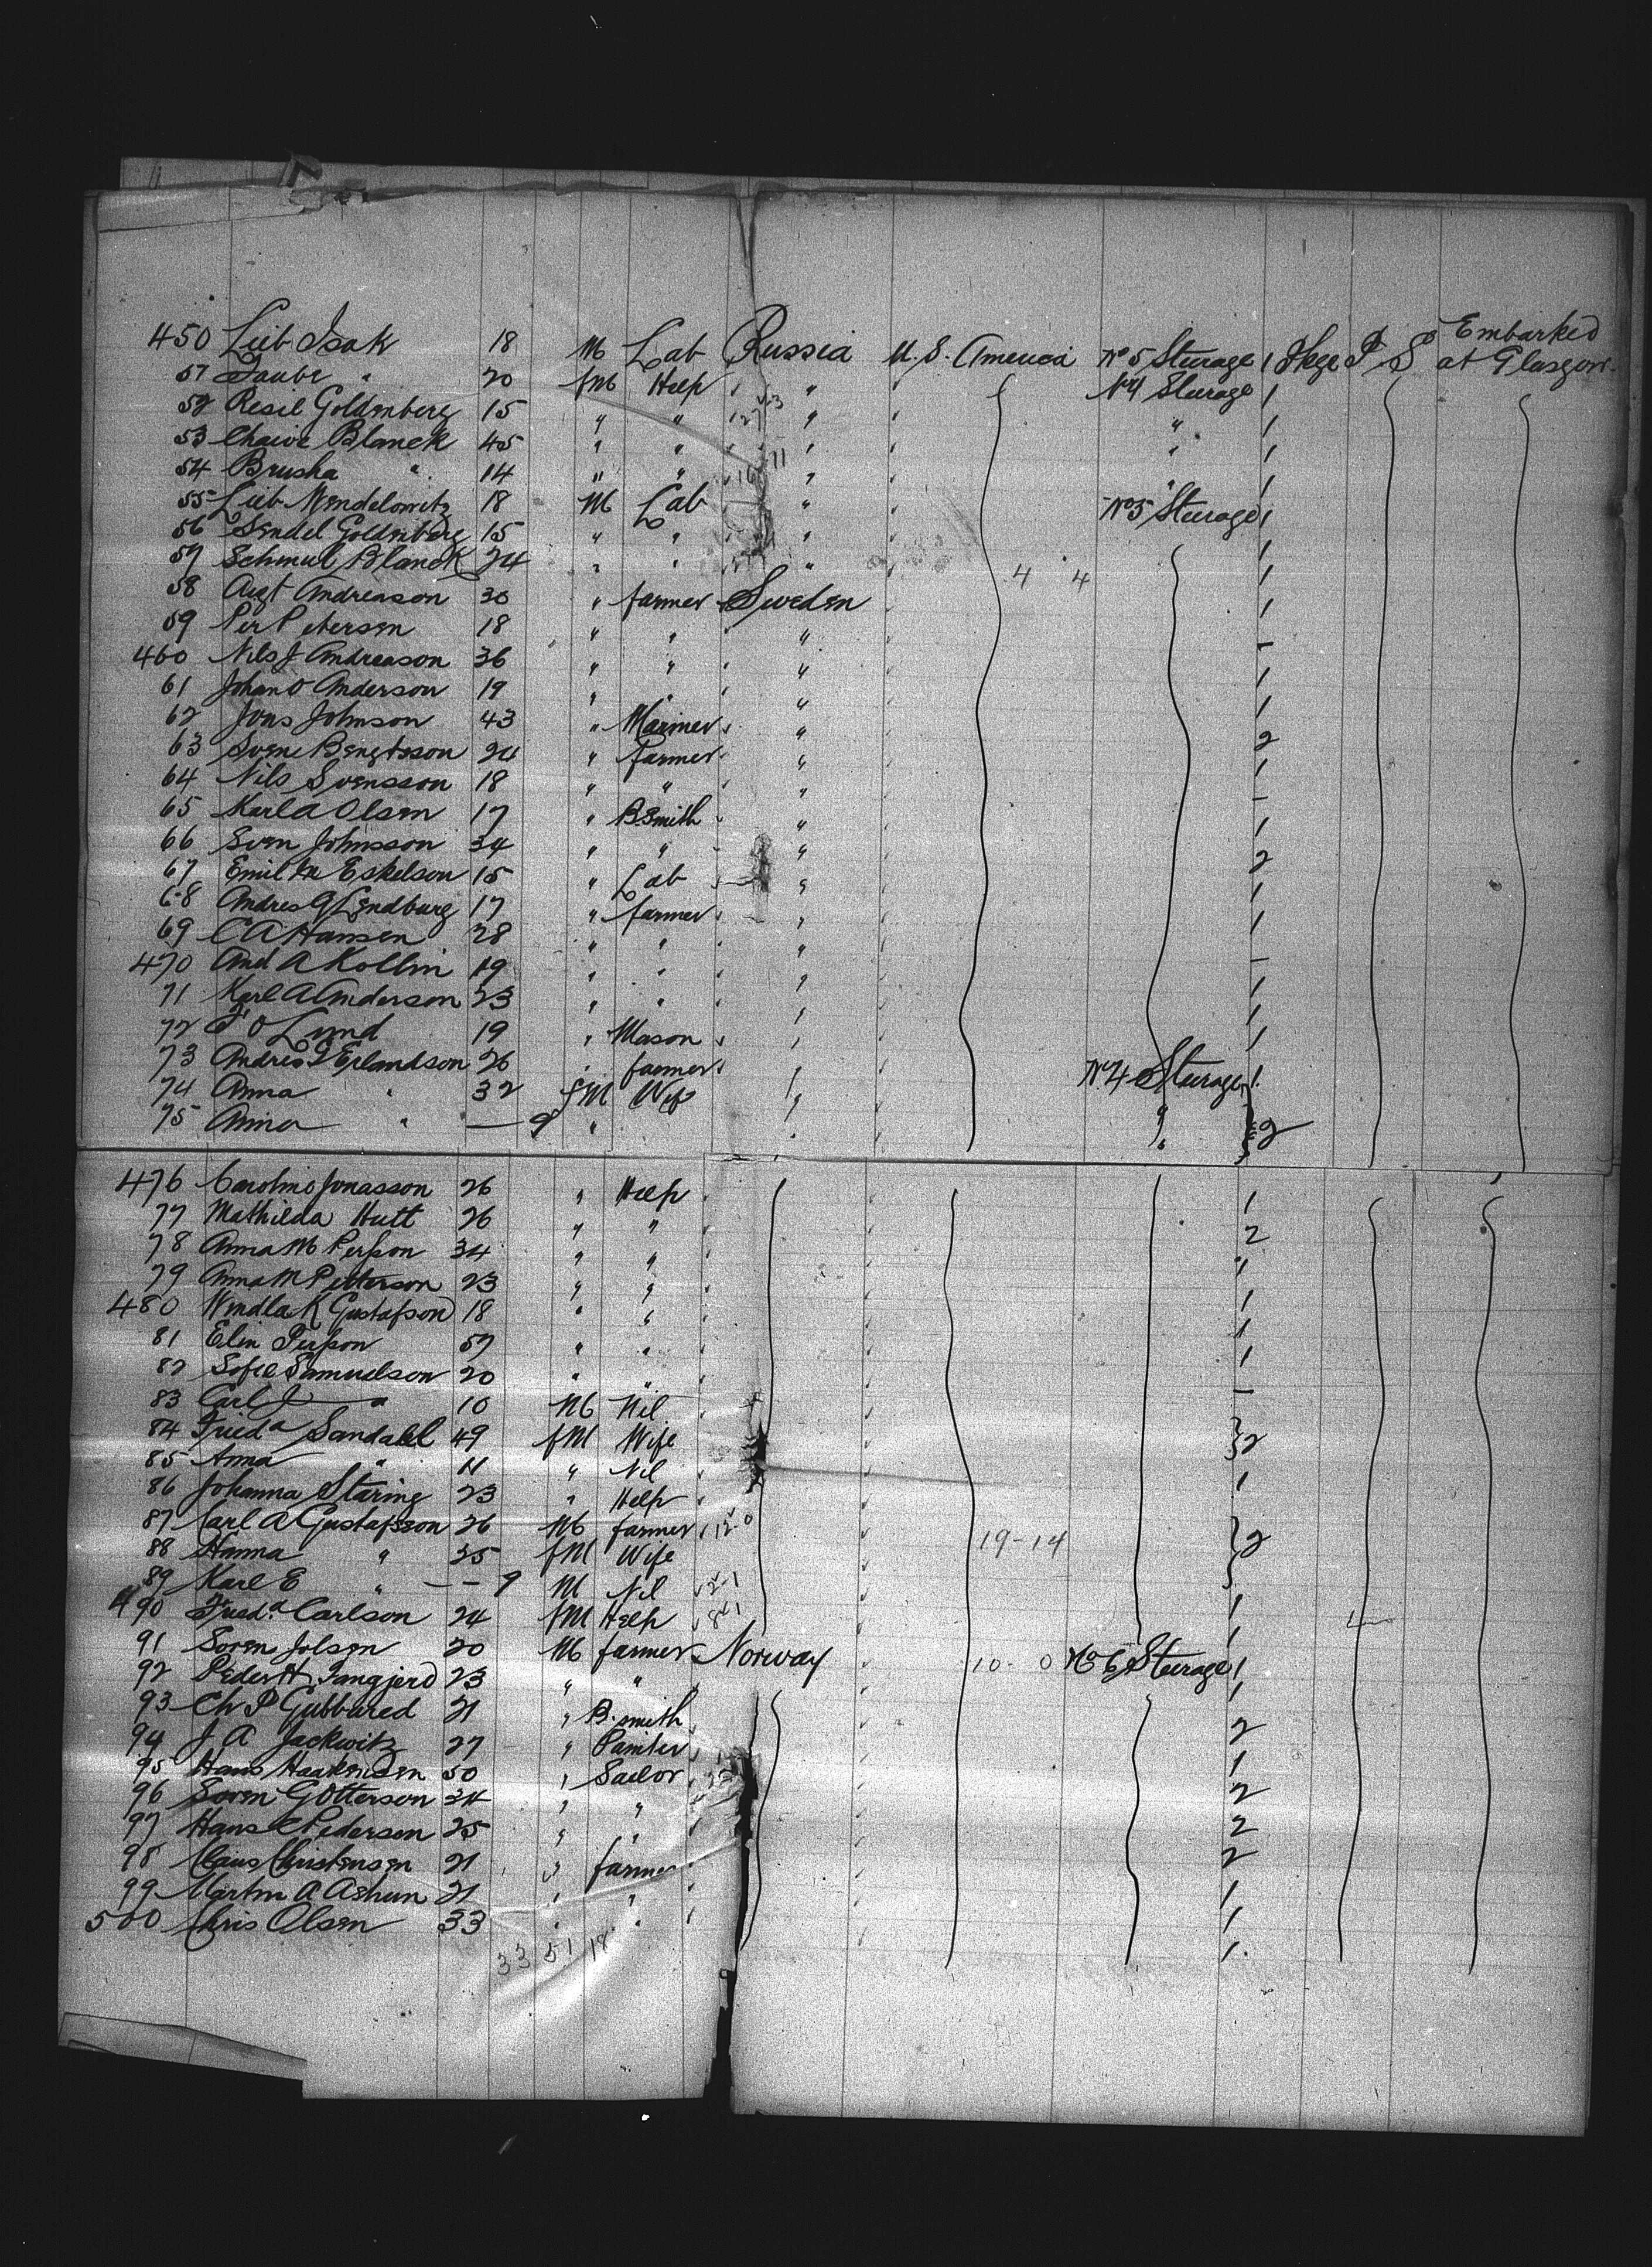 450 Lieb Isak 18 M Lab Russia U. S. America No 5 Steerage 1 Stge P S Embarked at Glasgow
51 Taube " 20 fM Help " " No 4 Steerage 1
52 Resel Goldenberg 15 " " " " 1
53 Chaive Blanck 45 " " " " 1
54 Brusha " 14 " " " " 1
55 Lieb Mendelowitz 18 M Lab " No 5 Steerage 1
56 Sendel Goldenberg 15 " " " 1
57 Schmul Blanck 24 " " " 4 4 1
58 Augt Andreason 30 " farmer Sweden 1
59 Per Petersen 18 " " " -
460 Nils J Andreason 36 " " " 1
61 Johan O Anderson 19 " " " 1
62 Jons Johnson 43 " Mariner " 2
63 Svene Bengtsson 24 " farmer " 1
64 Nils Svensson 18 " " " -
65 Karl A Olsen 17 " B Smith " 1
66 Sven Johnsson 34 " " " 2
67 Emil Eskelson 15 " Lab " 1
68 Andres G Lendburg 17 " farmer " 1
69 C A Hansen 28 " " " -
470 And A Kollin 19 " " " 1
71 Karl A Anderson 23 " " " 1
72 F O Lund 19 " Mason " 1
73 Andres J Erlandson 26 " farmer No 4 Steerage 1
74 Anna " 32 fM Wife " "
75 Anna " — 9 " " " 2
476 Carolino Jonasson 26 " Help 1
77 Mathilda Hutt 26 " " 2
78 Anna M Person 34 " " 1
79 Anna M Petterson 23 " " 1
480 Wendla K Gustafson 18 " " 1
81 Elin Person 57 " " 1
82 Sofie Samuelson 20 " " -
83 Carl J " 10 M Nil
84 Frieda Sandahl 49 fM Wife 2
85 Anna " 11 " Nil
86 Johanna Staring 23 " Help 1
87 Carl A Gustafsson 26 M farmer 19-14
88 Hanna " 25 fM Wife 2
89 Karl E " — 9 M Nil
490 Frieda Carlson 24 fM Help 1
91 Soren Jolsen 20 M farmer Norway 10-0 No 6 Steerage 1
92 Peder H Tangjerd 23 " " 1
93 Ch P Gubbared 21 " B. smith 2
94 J A Jackwitz 27 " Painter 1
95 Hans Haakensen 50 " Sailor 2
96 Soren G Otterson 34 " " 2
97 Hans C Pedersen 25 " " 2
98 Claus Christensen 21 " farmer 1
99 Martin A Ashun 21 " " 1
500 Chris Olsen 33 " " 1
33 51 18